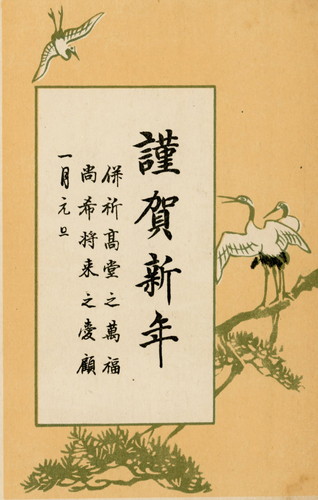 謹賀新年
併祈髙堂之萬福
尚希将来之愛顧
一月元旦